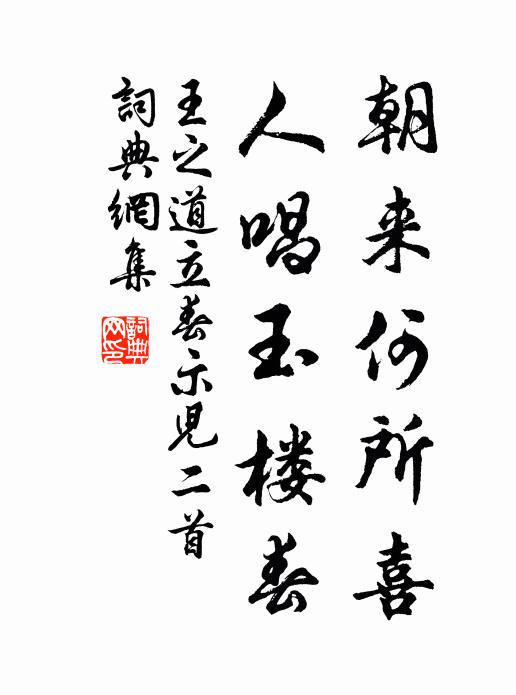 朝来何所喜
人唱玉楼春
王之道立春示児二首
詞典網集
詞典网印